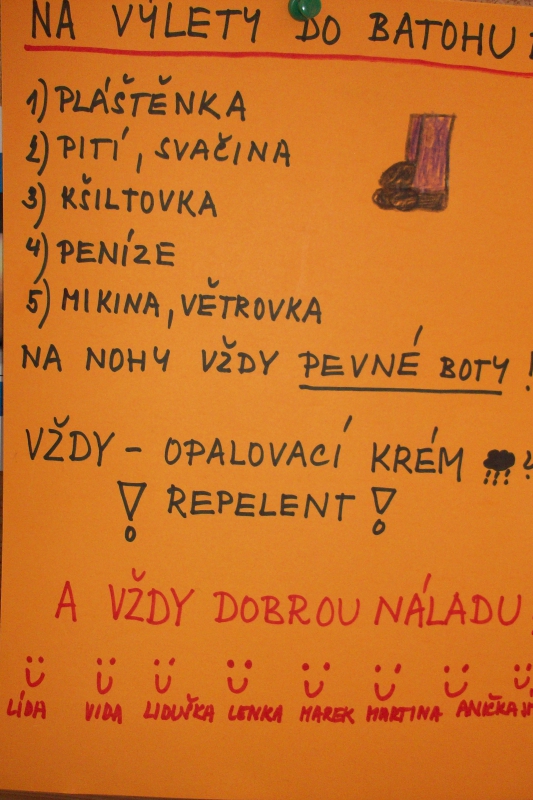 NA VÝLETY DO BATOHU
1) PLÁŠTĚNKA
2) PITÍ, SVAČINA
3) KŠILTOVKA
4) PENÍZE
5) MIKINA, VĚTROVKA
NA NOHY VŽDY PEVNÉ BOTY!
VŽDY - OPALOVACÍ KRÉM
! REPELENT !
A VŽDY DOBROU NÁLADU
LÍDA VIDA LIDUŠKA LENKA MAREK MARTINA ANIČKA